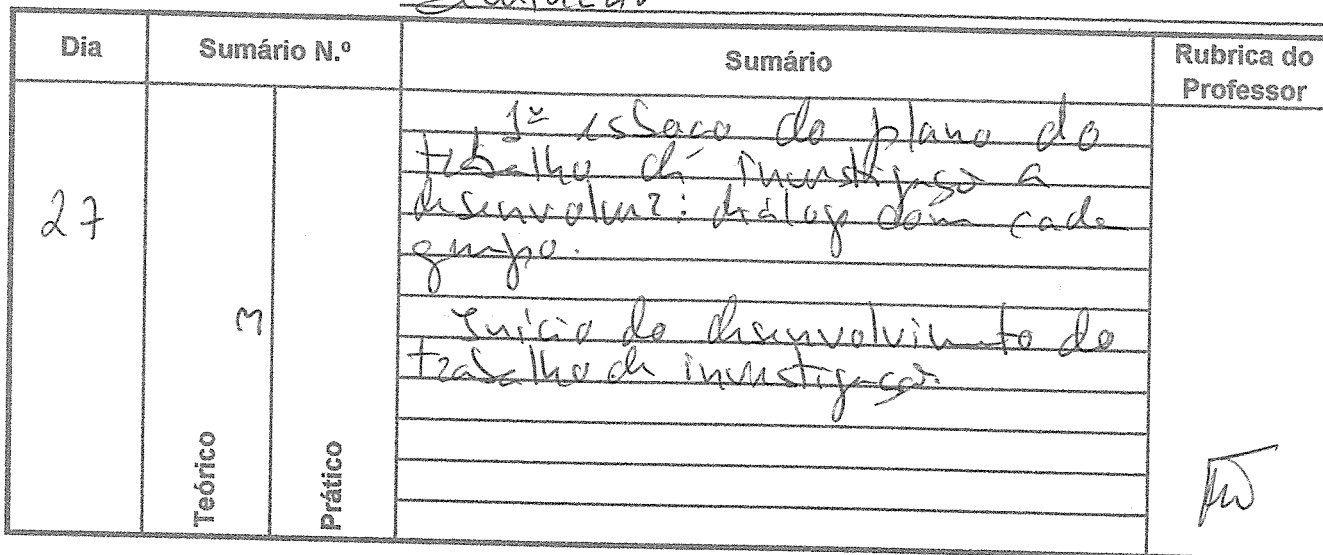 Dia Sumário N.º Sumário Rubrica do Professor
27
3
Teórico
Prático
1º esboço do plano do
trabalho de investigação a
desenvolver: diálogo com cada
grupo.
Início do desenvolvimento do
trabalho de investigação.